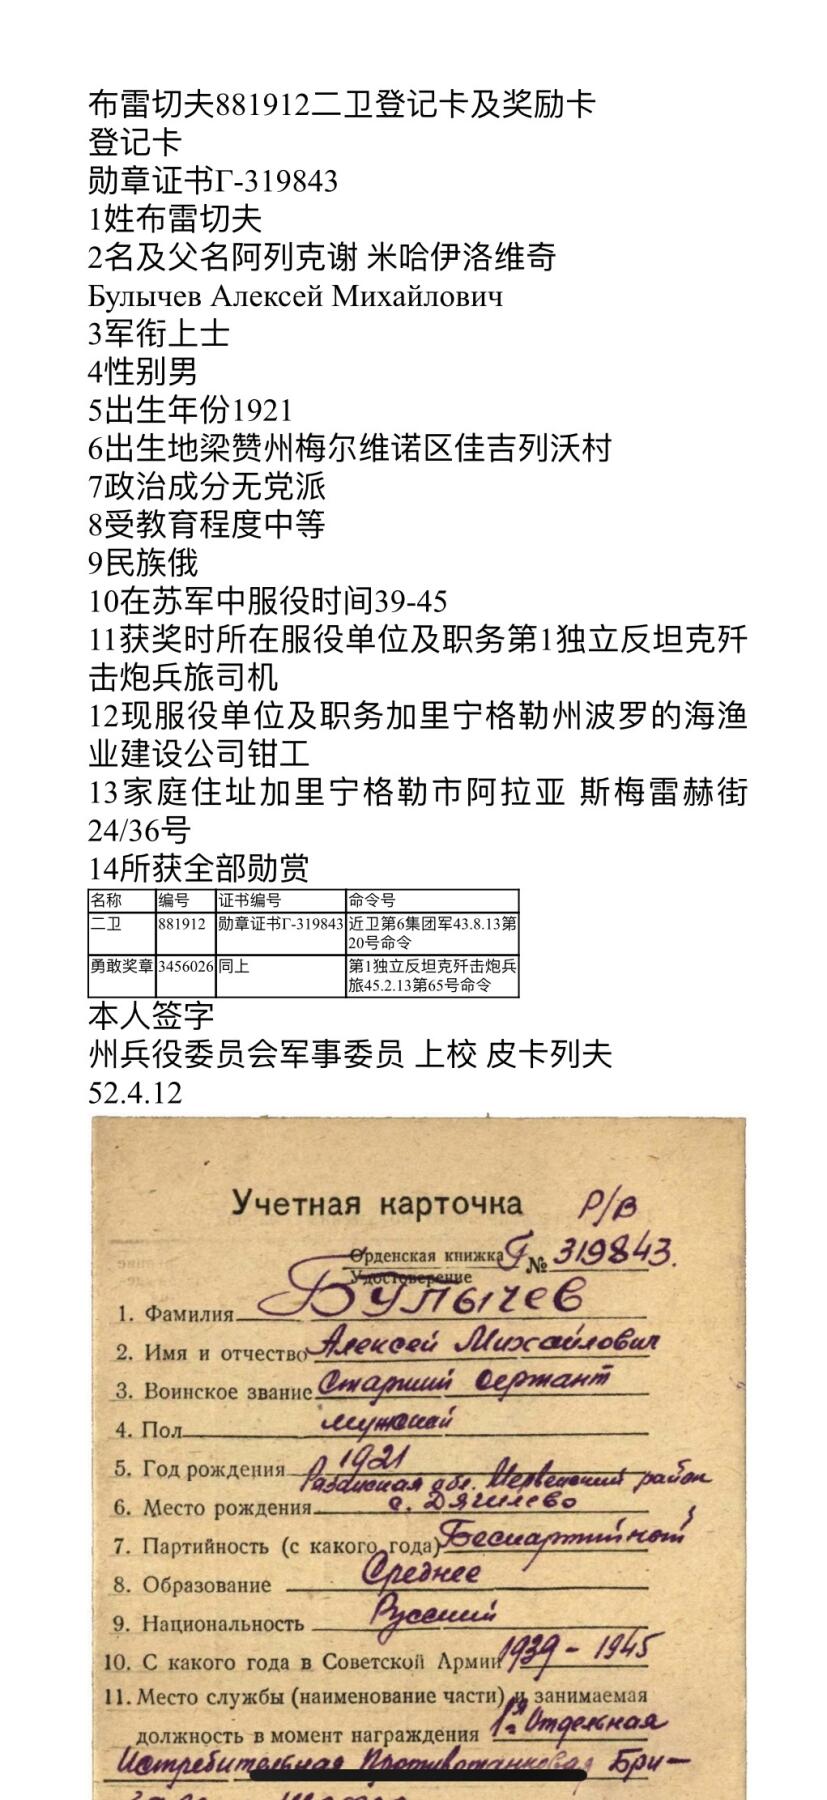 布雷切夫881912二卫登记卡及奖励卡
登记卡
勋章证书Г-319843
1姓布雷切夫
2名及父名阿列克谢 米哈伊洛维奇
Булычев Алексей Михайлович
3军衔上士
4性别男
5出生年份1921
6出生地梁赞州梅尔维诺区佳吉列沃村
7政治成分无党派
8受教育程度中等
9民族俄
10在苏军中服役时间39-45
11获奖时所在服役单位及职务第1独立反坦克歼
击炮兵旅司机
12现服役单位及职务加里宁格勒州波罗的海渔
业建设公司钳工
13家庭住址加里宁格勒市阿拉亚 斯梅雷赫街
24/36号
14所获全部勋赏
名称 编号 证书编号 命令号
二卫 881912 勋章证书Г-319843 近卫第6集团军43.8.13第
20号命令
勇敢奖章 3456026 同上 第1独立反坦克歼击炮兵
旅45.2.13第65号命令
本人签字
州兵役委员会军事委员 上校 皮卡列夫
52.4.12
Учетная карточка Р/В
Орденская книжка Г № 319843.
Удостоверение
1. Фамилия Булычев
2. Имя и отчество Алексей Михайлович
3. Воинское звание Старший сержант
4. Пол мужской
5. Год рождения 1921
Рязанская обл. Мервинский район
6. Место рождения с. Дягилево
7. Партийность (с какого года) Беспартийный
8. Образование Среднее
9. Национальность Русский
10. С какого года в Советской Армии 1939 - 1945
11. Место службы (наименование части) и занимаемая
должность в момент награждения 1-я Отдельная
Истребительная Противотанковая Бри-